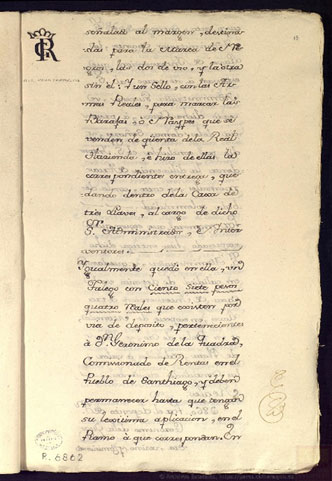 señala al margen, destina
das para la Marca de Ne
gros, las dos de uso, y la otra
sin él: Y un Sello, con las Ar
mas Reales, para marcar las
Barajas, ò Naypes que se
venden de quenta dela Real
Hazienda, è hizo de ellas la
correspondiente entrega, que
dando dentro dela Caxa de
tres llaves, al cargo de dicho
Sr. Administrador, è Inter
ventores.
Igualmente quedó en ella, un
Talego con Ciento Siete pesos
quatro Reales que existen por
via de deposito, pertenecientes
à Dn. Geronimo dela
Comisionado de Rentas en el
Pueblo de Santhiago, y deben
permanecer hasta que tengan
su lexitima aplicacion, en el
Ramo à que correspondan. En
P. 6862